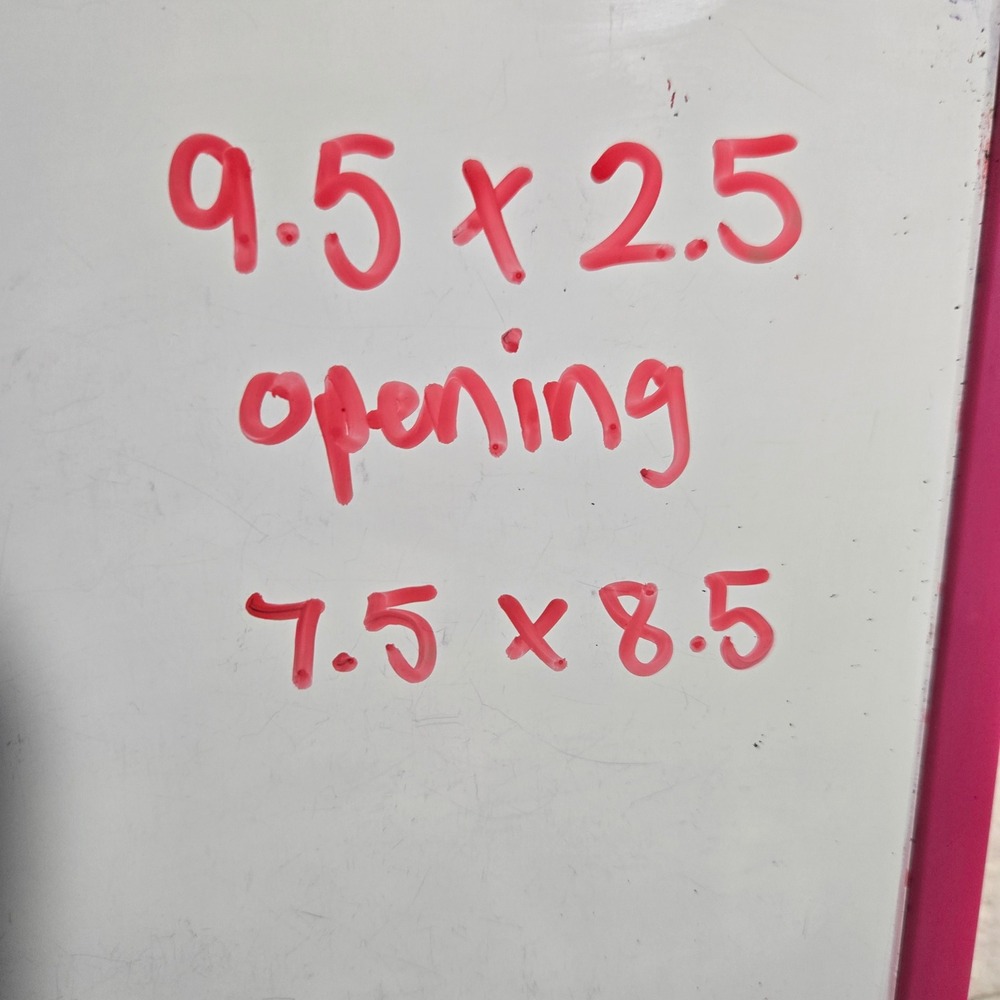 9.5 x 2.5
opening
7.5 x 8.5